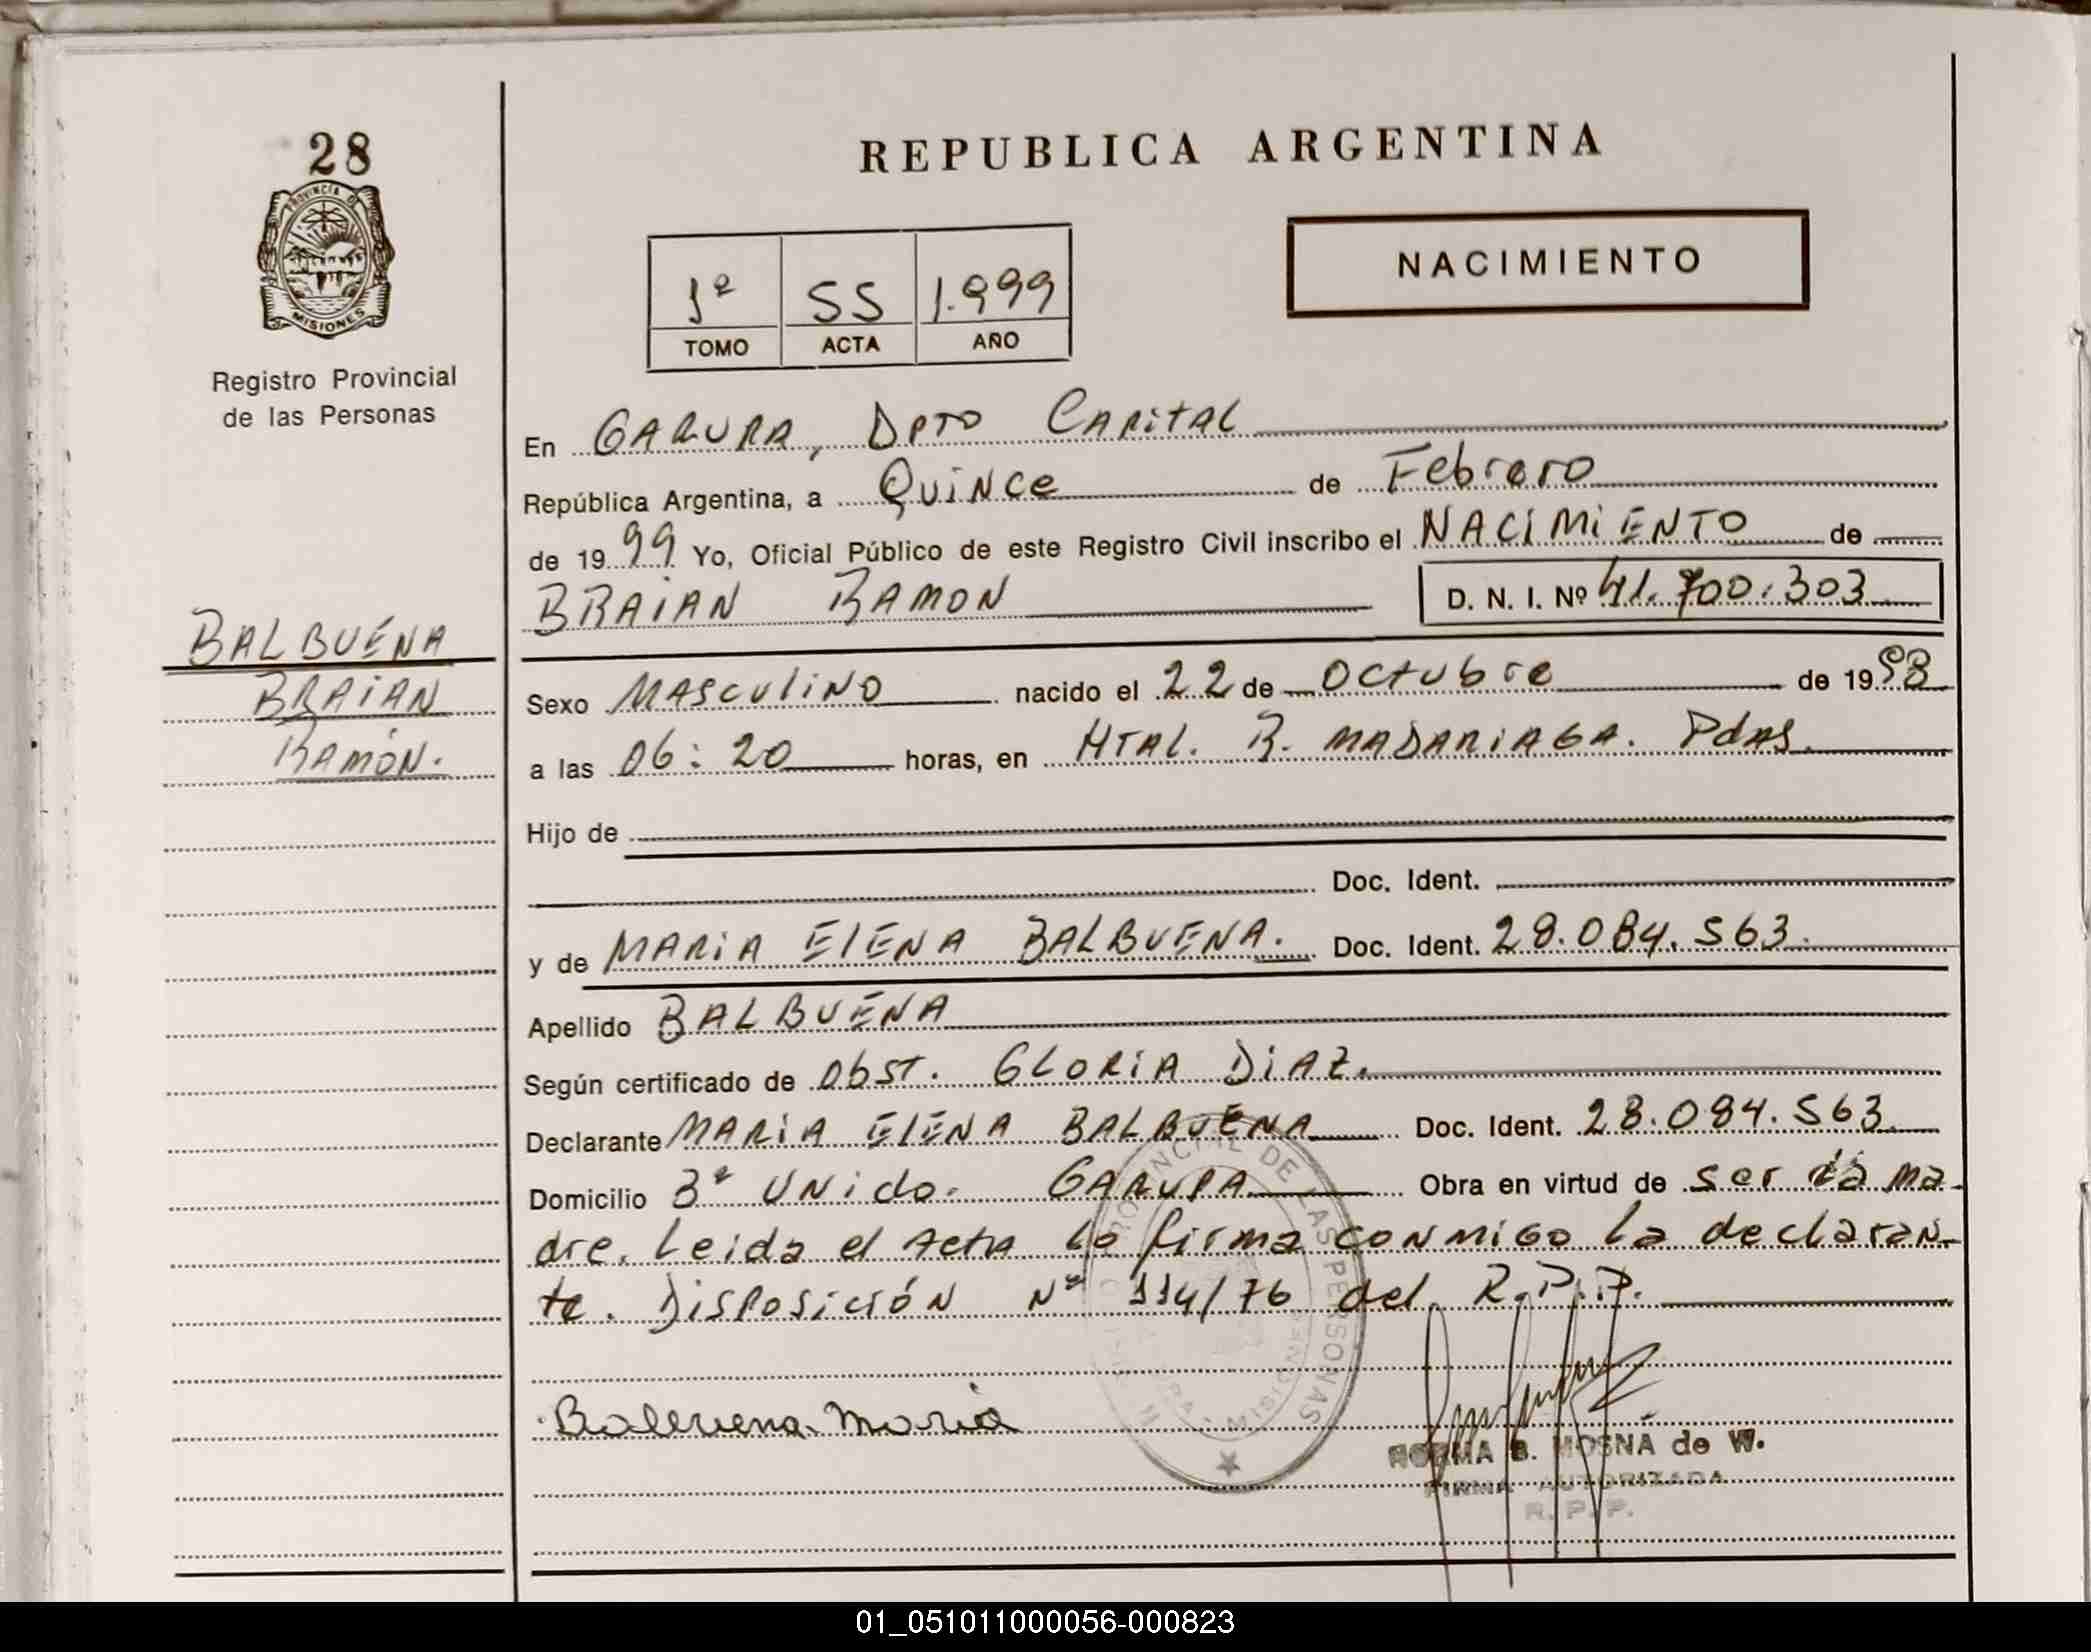 28
PROVINCIA DE
MISIONES
Registro Provincial
de las Personas
BALBUENA
BRAIAN
RAMÓN.
REPUBLICA ARGENTINA
NACIMIENTO
1º 55 1.999
TOMO ACTA AÑO
En GARUPA, DPTO CAPITAL
República Argentina, a QUINCE de Febrero
de 1999 Yo, Oficial Público de este Registro Civil inscribo el NACIMIENTO de
BRAIAN RAMON D. N. I. Nº 41.700.303
Sexo MASCULINO nacido el 22 de Octubre de 1998
a las 06:20 horas, en HTAL. R. MADARIAGA. Pdas.
Hijo de
Doc. Ident.
y de MARIA ELENA BALBUENA. Doc. Ident. 28.084.563.
Apellido BALBUENA
Según certificado de Obst. GLORIA DIAZ.
Declarante MARIA ELENA BALBUENA Doc. Ident. 28.084.563.
Domicilio Bº UNido. GARUPA Obra en virtud de ser la ma-
dre. Leida el Acta la firma conmigo la declaran-
te. Disposición Nº 114/76 del R.P.P.
Balbuena Maria
PROVINCIAL DE LAS PERSONAS
MISIONES
NORMA B. MOSNA de W.
FIRMA AUTORIZADA
R. P. P.
01_051011000056-000823